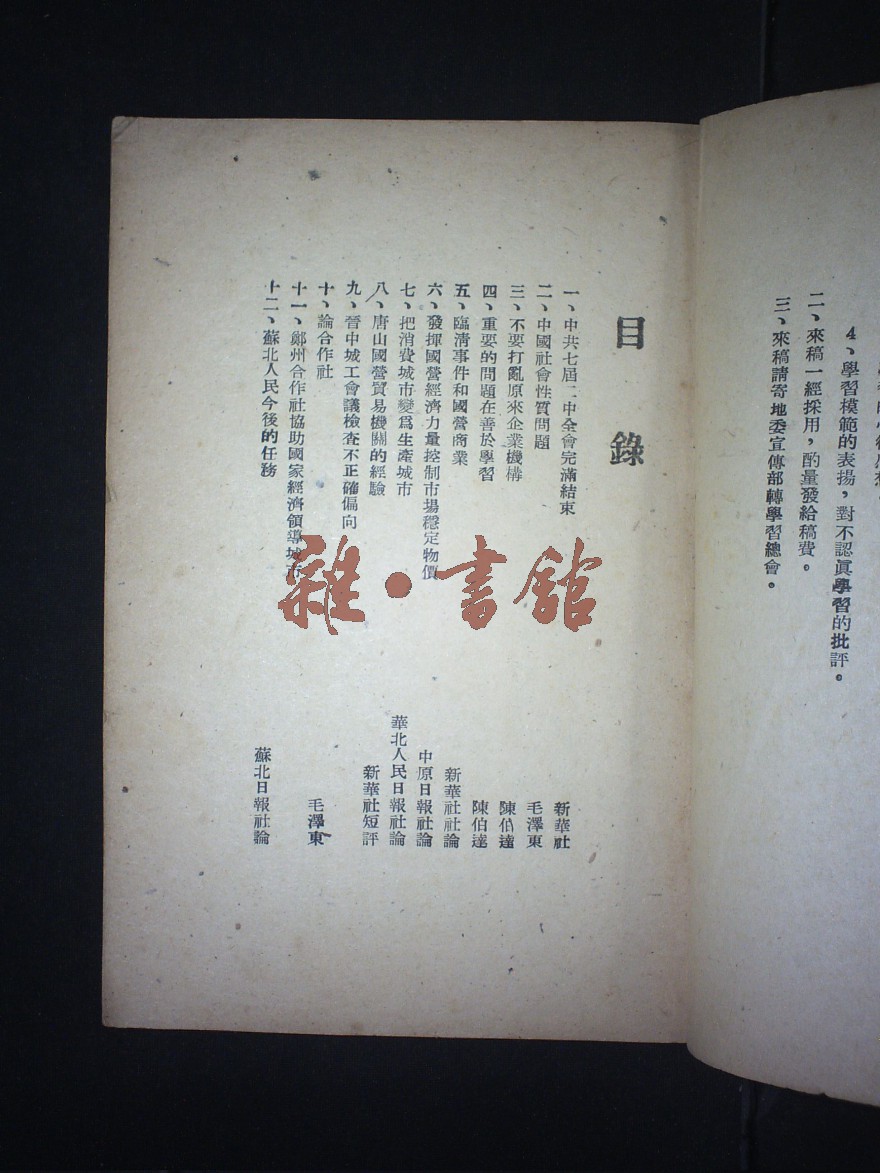 4、學習模範的表揚，對不認眞學習的批評。
二、來稿一經採用，酌量發給稿費。
三、來稿請寄地委宣傳部轉學習總會。
目錄
一、中共七屆二中全會完滿結束 新華社
二、中國社會性質問題 毛澤東
三、不要打亂原來企業機構 陳伯達
四、重要的問題在善於學習 陳伯達
五、臨清事件和國營商業 新華社社論
六、發揮國營經濟力量控制市場穩定物價 中原日報社論
七、把消費城市變爲生產城市 華北人民日報社論
八、唐山國營貿易機關的經驗 新華社短評
九、晉中城工會議檢查不正確偏向
十、論合作社 毛澤東
十一、鄭州合作社協助國家經濟領導城市
十二、蘇北人民今後的任務 蘇北日報社論
雜·書館